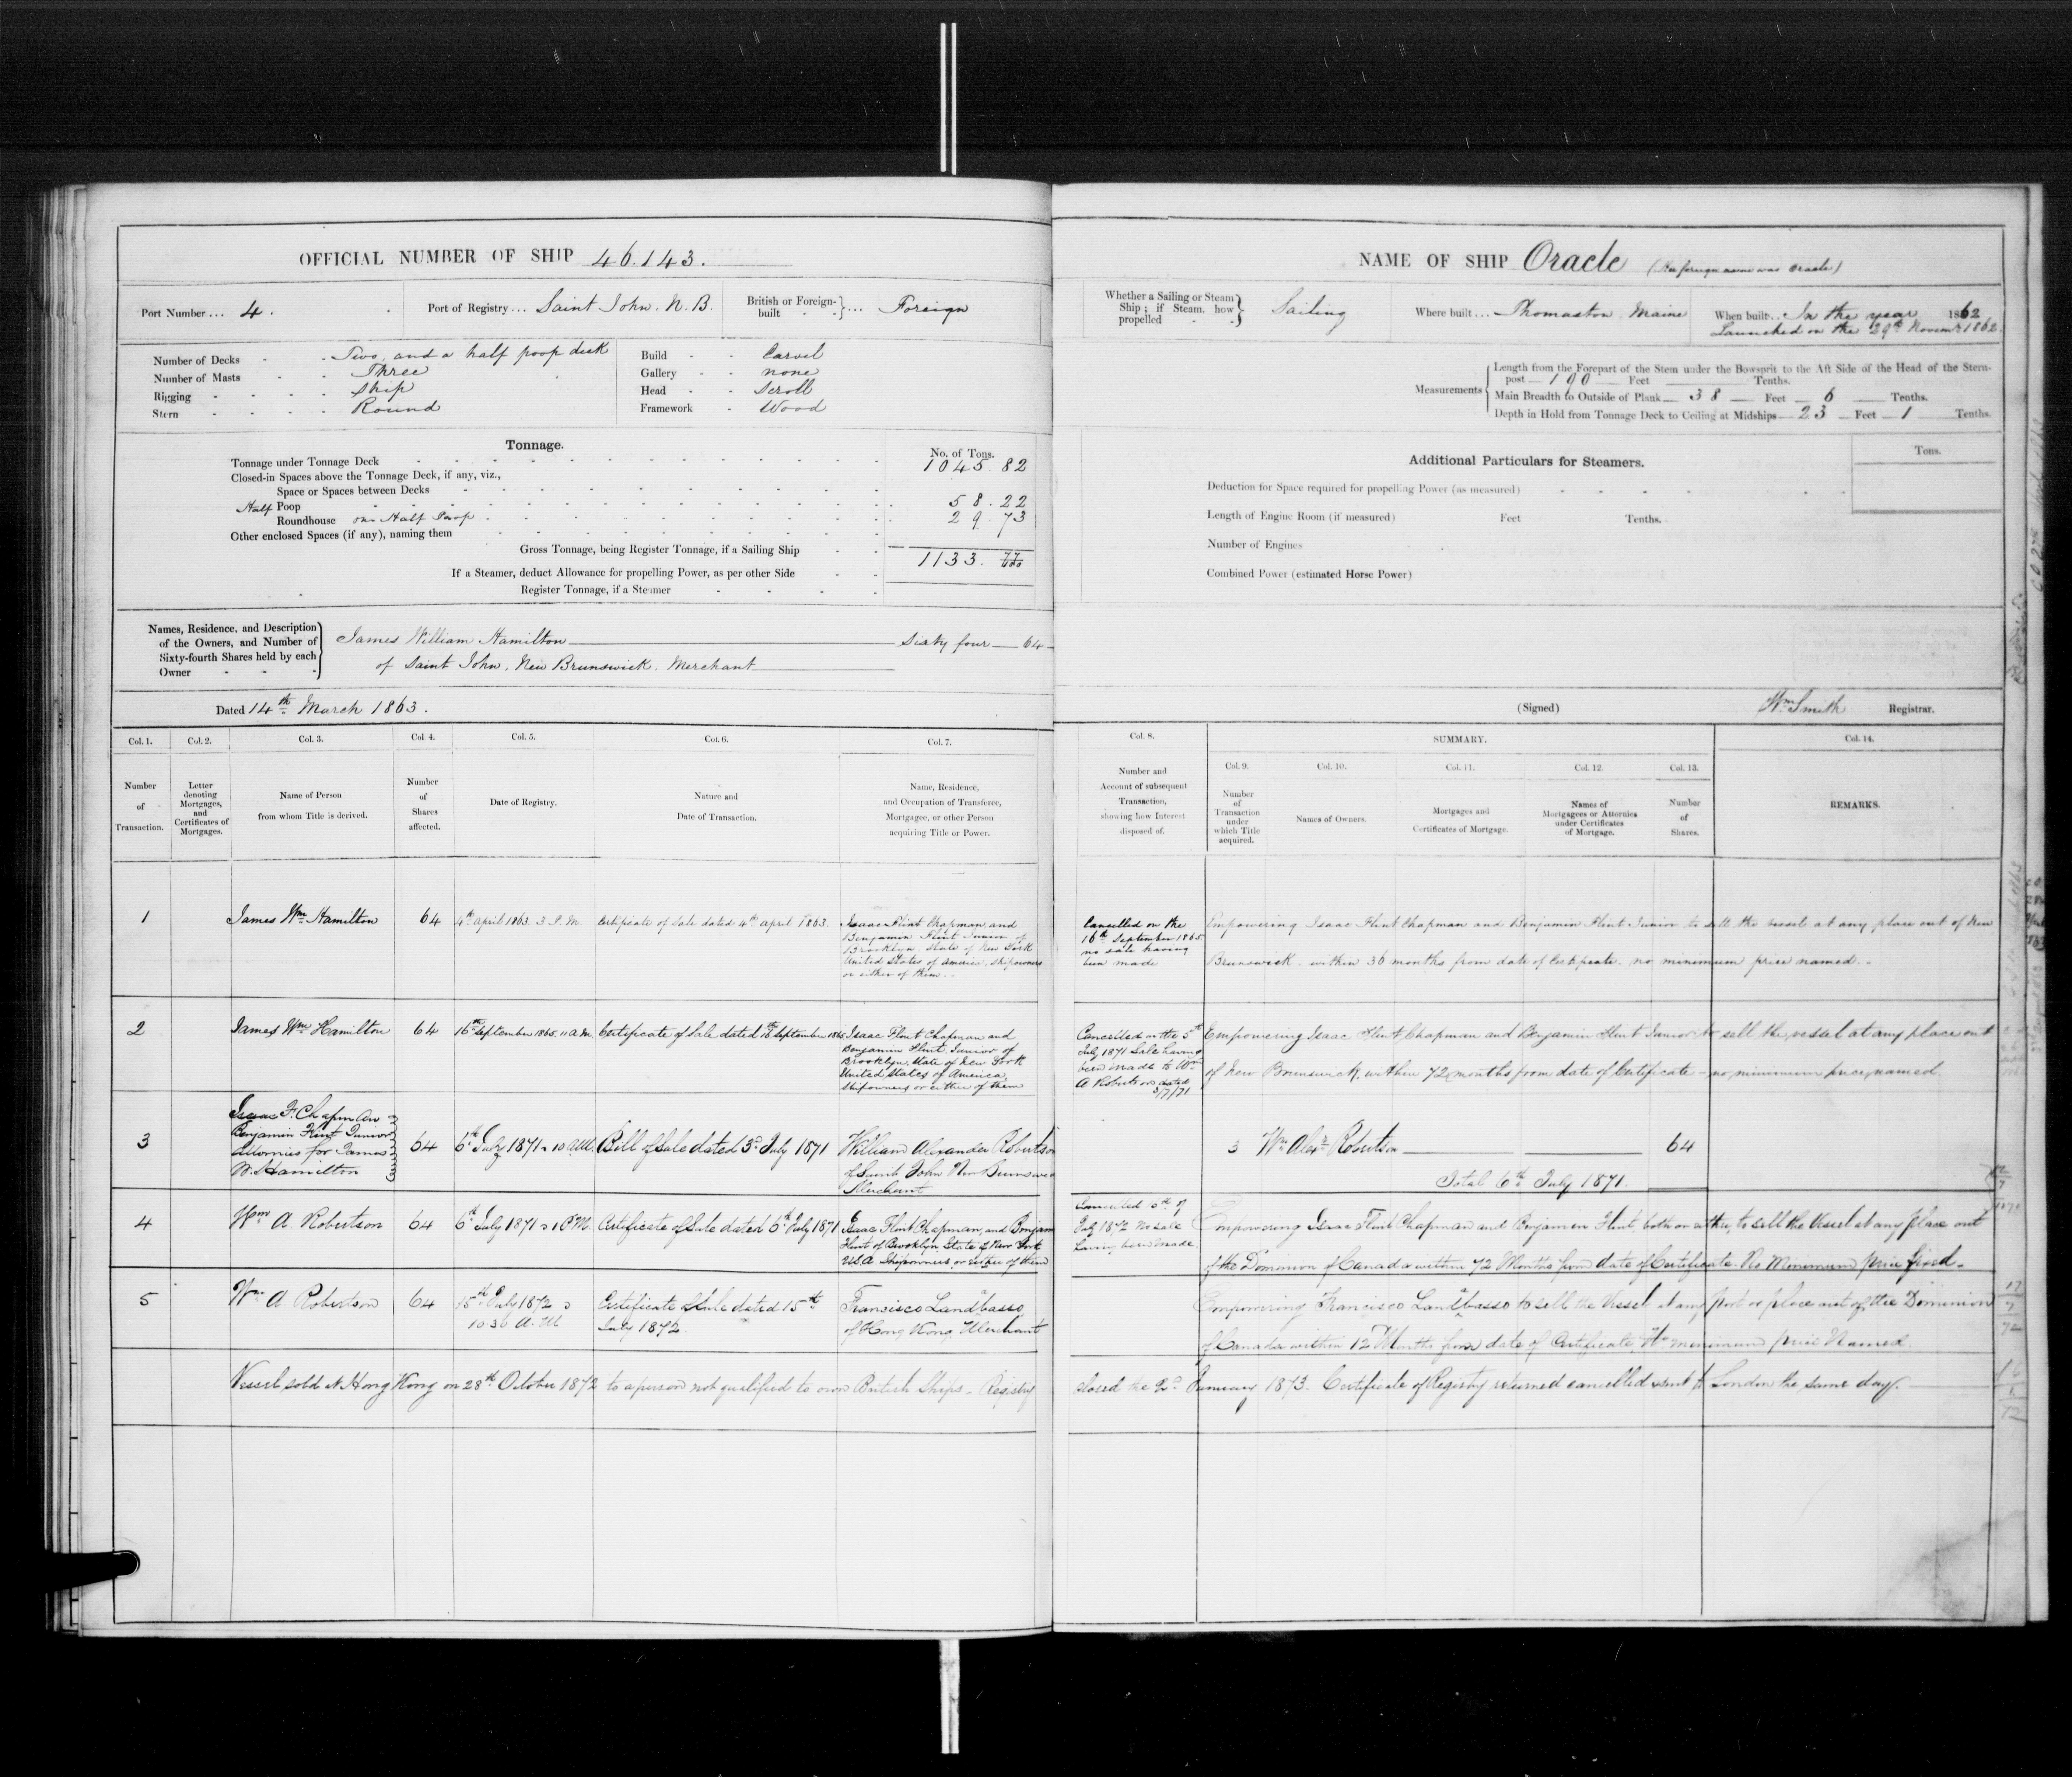 OFFICIAL NUMBER OF SHIP 46.143.
Port Number... 4.
Port of Registry... Saint John. N.B.
British or Foreign-built } ... Foreign
Number of Decks - Two, and a half poop deck
Number of Masts - - Three
Rigging - - - - Ship
Stern - - - - Round
Build - - Carvel
Gallery - - none
Head - - Scroll
Framework - Wood
Tonnage.
No. of Tons.
Tonnage under Tonnage Deck 1045.82
Closed-in Spaces above the Tonnage Deck, if any, viz.,
Space or Spaces between Decks
Half Poop 58.22
Roundhouse on Half Poop 29.73
Other enclosed Spaces (if any), naming them
Gross Tonnage, being Register Tonnage, if a Sailing Ship 1133. 77/100
If a Steamer, deduct Allowance for propelling Power, as per other Side
Register Tonnage, if a Steamer
Names, Residence, and Description
of the Owners, and Number of
Sixty-fourth Shares held by each
Owner
James William Hamilton Sixty four 64
of Saint John, New Brunswick. Merchant
Dated 14th March 1863.
NAME OF SHIP Oracle (Her foreign name was Oracle)
Whether a Sailing or Steam
Ship; if Steam, how
propelled
Sailing
Where built... Thomaston. Maine
When built... In the year 1862
Launched on the 29th November 1862.
Measurements
Length from the Forepart of the Stem under the Bowsprit to the Aft Side of the Head of the Stern-
post 190 Feet Tenths.
Main Breadth to Outside of Plank 38 Feet 6 Tenths.
Depth in Hold from Tonnage Deck to Ceiling at Midships 23 Feet 1 Tenths.
Additional Particulars for Steamers.
Tons.
Deduction for Space required for propelling Power (as measured)
Length of Engine Room (if measured) Feet Tenths.
Number of Engines
Combined Power (estimated Horse Power)
(Signed) Wm Smith Registrar.
Col. 1.
Number
of
Transaction.
Col. 2.
Letter
denoting
Mortgages,
and
Certificates of
Mortgages.
Col. 3.
Name of Person
from whom Title is derived.
Col. 4.
Number
of
Shares
affected.
Col. 5.
Date of Registry.
Col. 6.
Nature and
Date of Transaction.
Col. 7.
Name, Residence,
and Occupation of Transferee,
Mortgagee, or other Person
acquiring Title or Power.
Col. 8.
Number and
Account of subsequent
Transaction,
showing how Interest
disposed of.
SUMMARY.
Col. 9.
Number
of
Transaction
under
which Title
acquired.
Col. 10.
Names of Owners.
Col. 11.
Mortgages and
Certificates of Mortgage.
Col. 12.
Names of
Mortgagees or Attornies
under Certificates
of Mortgage.
Col. 13.
Number
of
Shares.
Col. 14.
REMARKS.
1
James Wm Hamilton
64
4th April 1863. 3 P.M.
Certificate of Sale dated 4th April 1863.
Isaac Flint Chapman and
Benjamin Flint Junior of
Brooklyn. State of New York
United States of America, Shipowners
or either of them.
Cancelled on the
16th September 1865
no sale having
been made
Empowering Isaac Flint Chapman and Benjamin Flint Junior to sell the vessel at any place out of New
Brunswick within 36 months from date of Certificate. no minimum price named.
2
James Wm Hamilton
64
16th September 1865. 11 A.M.
Certificate of Sale dated 16th September 1865
Isaac Flint Chapman and
Benjamin Flint, Junior of
Brooklyn, State of New York
United States of America,
Shipowners or either of them
Cancelled on the 5th
July 1871 Sale having
been made to Wm
A Robertson dated
3/7/71
Empowering Isaac Flint Chapman and Benjamin Flint Junior to sell the vessel at any place out
of New Brunswick, within 72 months from date of Certificate - no minimum price named.
3
Isaac F. Chapman
Benjamin Flint Junior
Attornies for James
W. Hamilton
64
6th July 1871 10 AM.
Bill of Sale dated 3d July 1871
William Alexander Robertson
of Saint John New Brunswick
Merchant
3 Wm Alexr Robertson 64
Total 6th July 1871.
4
Wm A. Robertson
64
6th July 1871 1 PM
Certificate of Sale dated 6th July 1871
Isaac Flint Chapman, and Benjamin
Flint of Brooklyn State of New York
U.S.A. Shipowners or either of them
Cancelled 15th of
July 1872 No Sale
having been made.
Empowering Isaac Flint Chapman and Benjamin Flint, both or either, to sell the Vessel at any place out
of the Dominion of Canada within 72 Months from date of Certificate. No Minimum price fixed.
5
Wm A. Robertson
64
15th July 1872
10 30 A.M
Certificate of Sale dated 15th
July 1872.
Francisco Landabasso
of Hong Kong Merchant
Empowering Francisco Landabasso to sell the Vessel at any port or place out of the Dominion
of Canada within 12 Months from date of Certificate No minimum price Named.
Vessel sold at Hong Kong on 28th October 1872 to a person not qualified to own British Ships - Registry closed the 2d January 1873. Certificate of Registry returned cancelled & sent to London the same day.